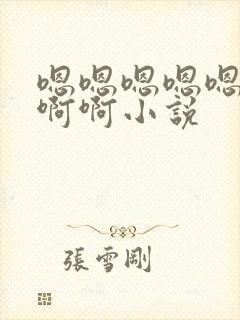 嗯嗯嗯嗯嗯
啊啊小説
張雪剛